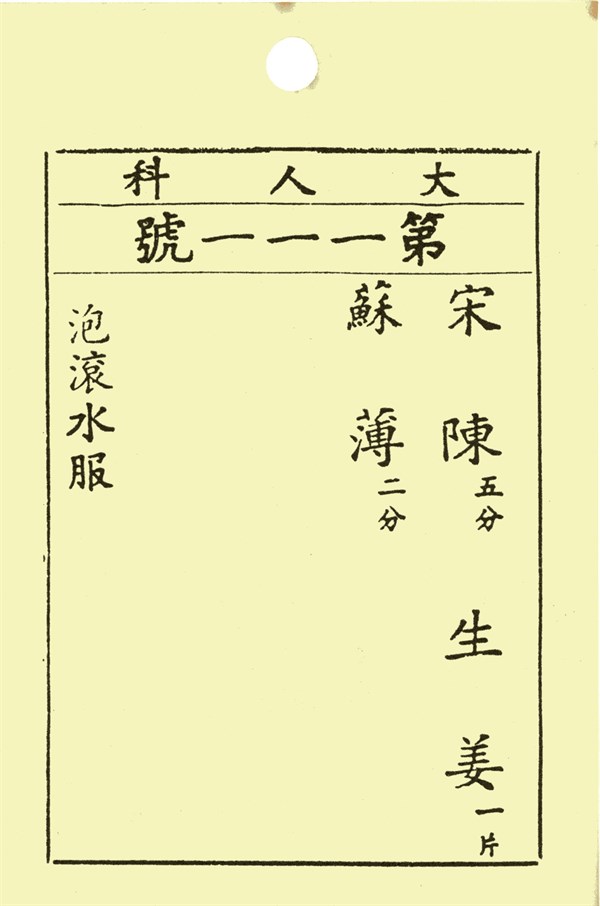 大人科
第一一一號
宋陳五分 生姜一片
蘇薄二分
泡滾水服